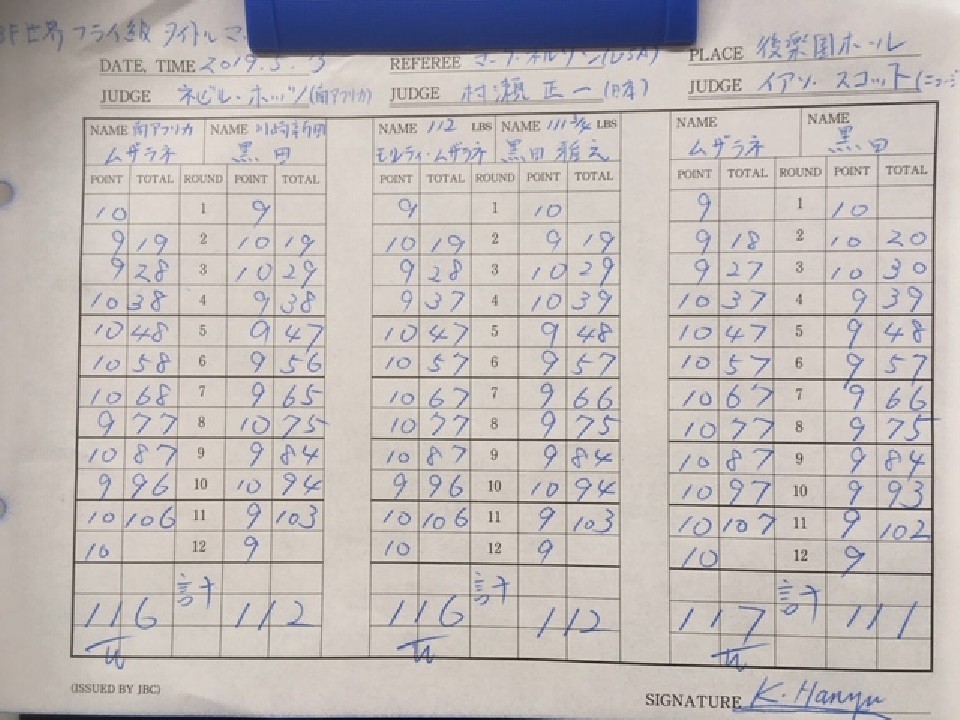 世界 フライ級 タイトルマ
DATE, TIME 2019.5.13 REFEREE (USA) PLACE 後楽園ホール
JUDGE ネビル・ホッツ(南アフリカ) JUDGE 村瀬正一(日本) JUDGE イアン スコット(ニュージ
NAME 南アフリカ NAME 川崎新田 NAME 112 LBS NAME 111 3/4 LBS NAME NAME
ムザラネ 黒田 モルティ・ムザラネ 黒田雅之 ムザラネ 黒田
POINT TOTAL ROUND POINT TOTAL POINT TOTAL ROUND POINT TOTAL POINT TOTAL ROUND POINT TOTAL
10 1 9 9 1 10 9 1 10
9 19 2 10 19 10 19 2 9 19 9 18 2 10 20
9 28 3 10 29 9 28 3 10 29 9 27 3 10 30
10 38 4 9 38 9 37 4 10 39 10 37 4 9 39
10 48 5 9 47 10 47 5 9 48 10 47 5 9 48
10 58 6 9 56 10 57 6 9 57 10 57 6 9 57
10 68 7 9 65 10 67 7 9 66 10 67 7 9 66
9 77 8 10 75 10 77 8 9 75 10 77 8 9 75
10 87 9 9 84 10 87 9 9 84 10 87 9 9 84
9 96 10 10 94 9 96 10 10 94 10 97 10 9 93
10 106 11 9 103 10 106 11 9 103 10 107 11 9 102
10 12 9 10 12 9 10 12 9
116 計 112 116 計 112 117 計 111
(ISSUED BY JBC) SIGNATURE K. Hanyu